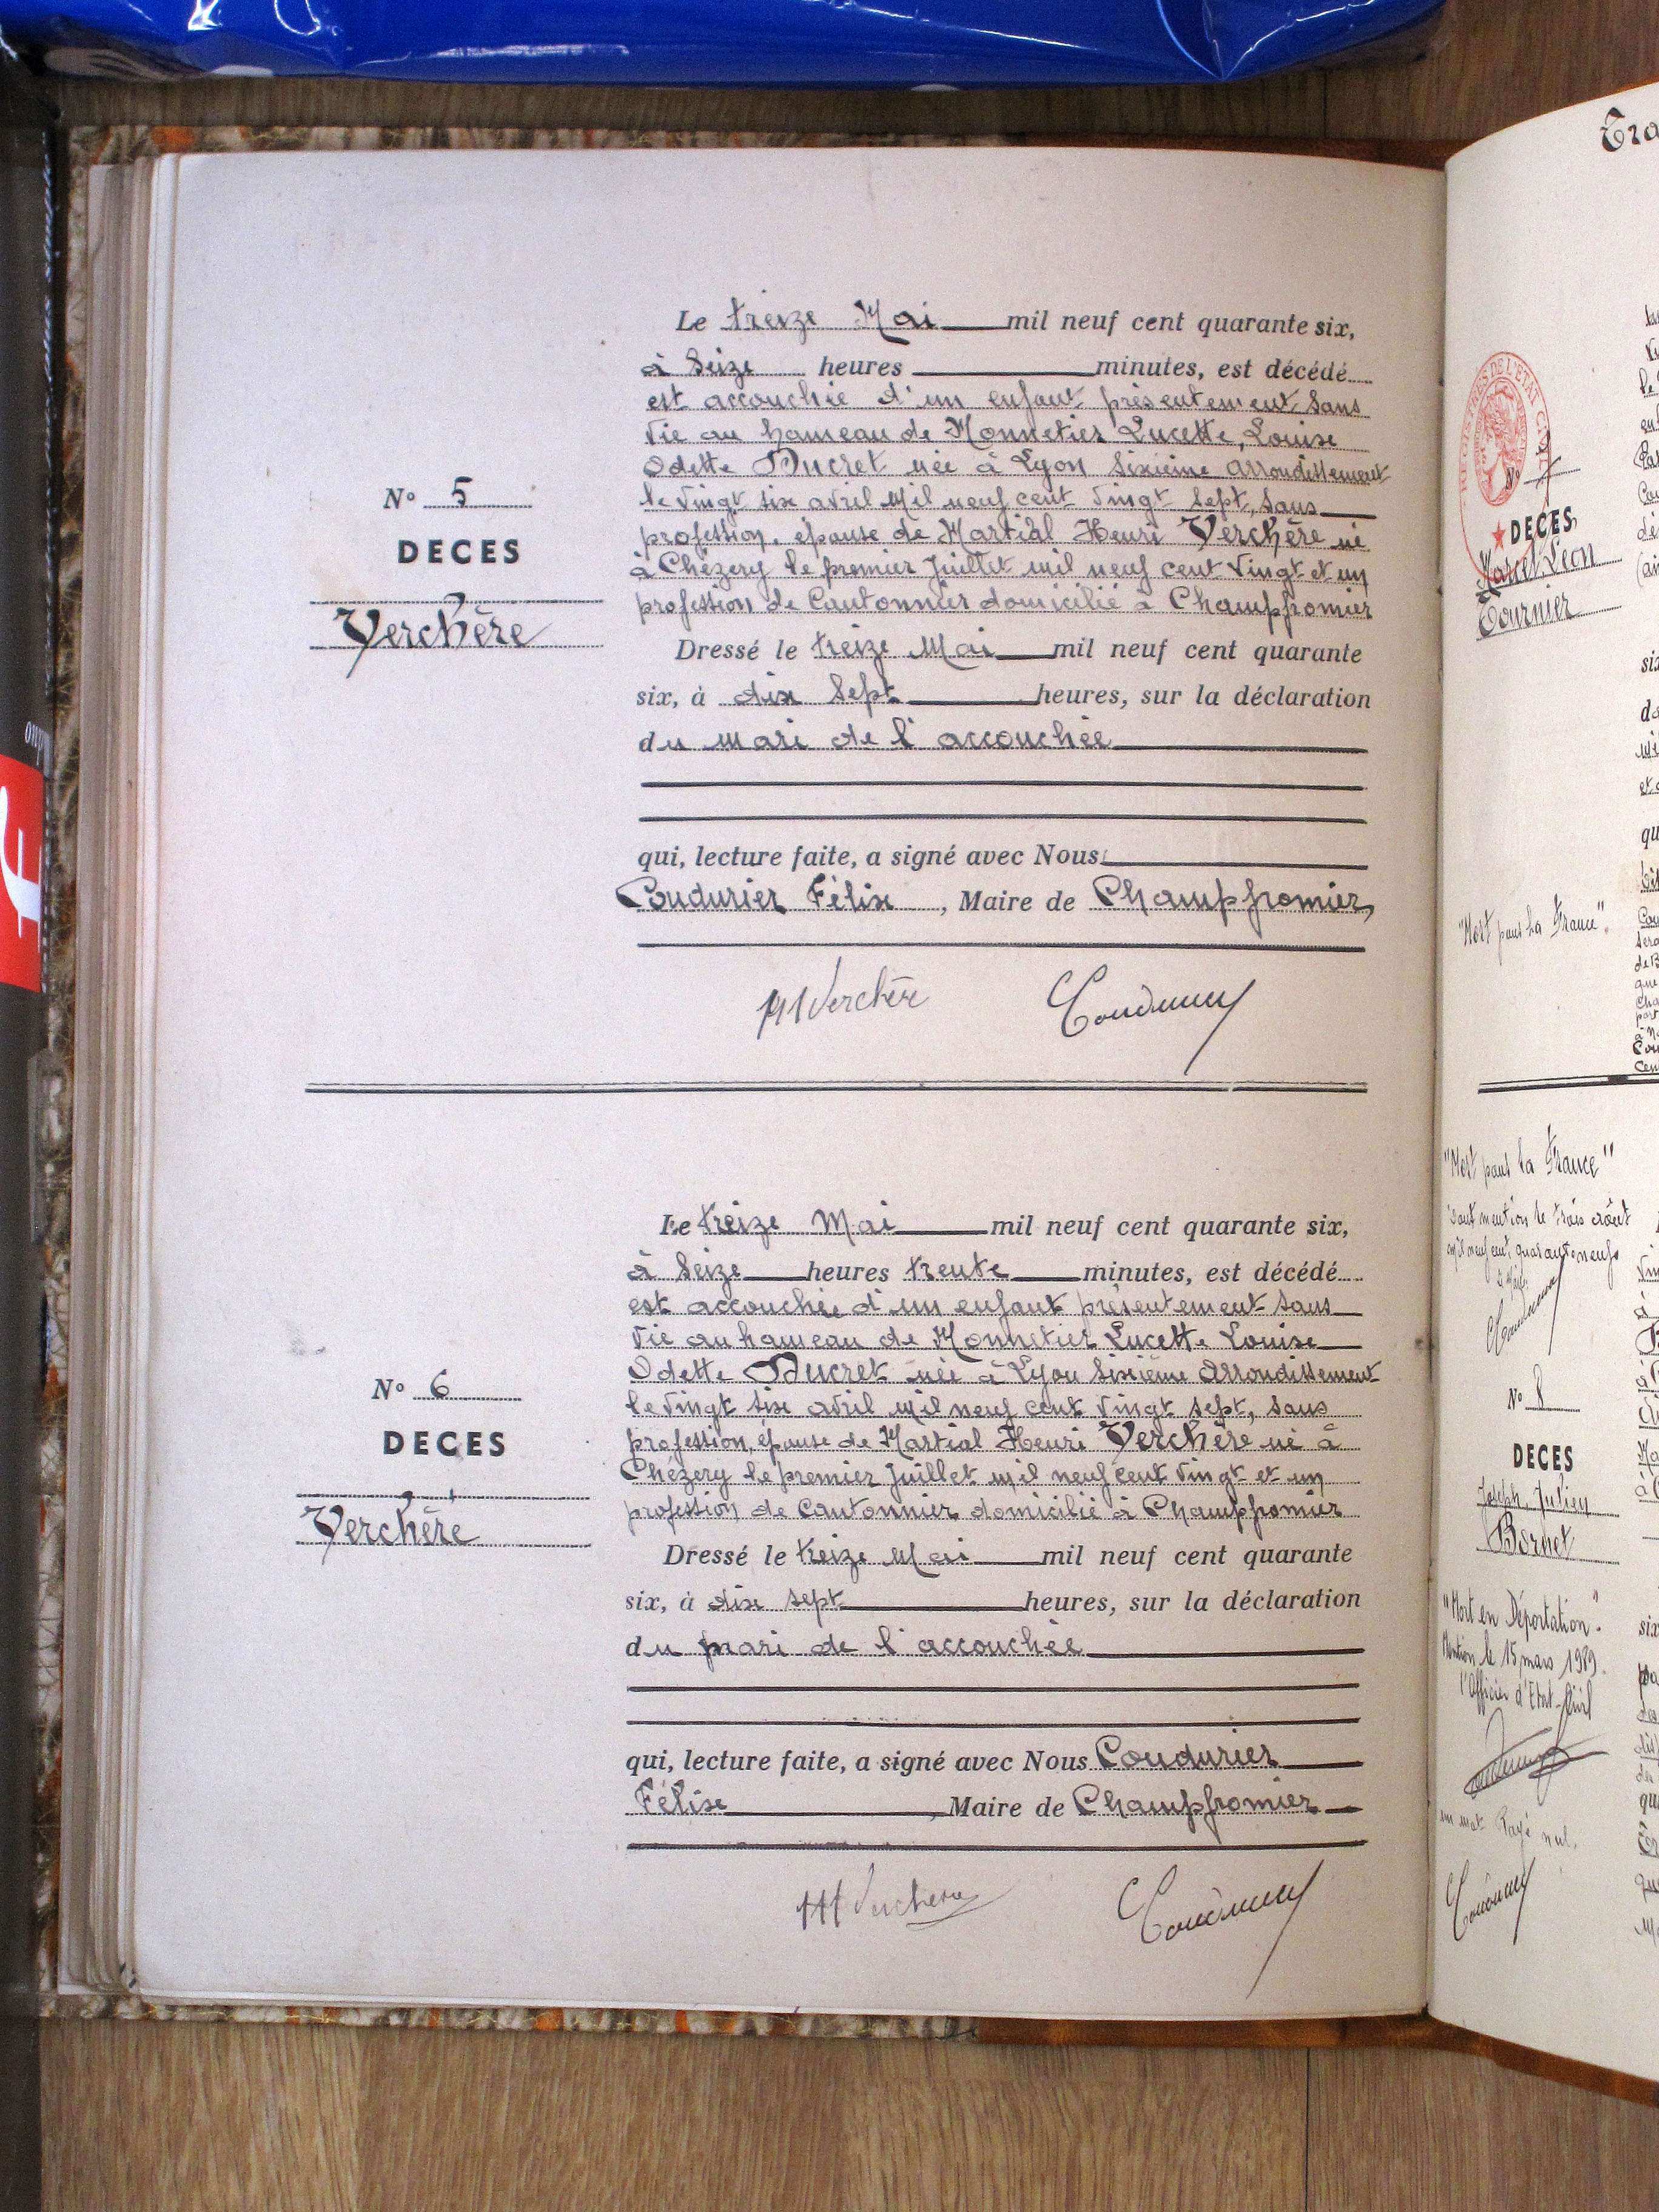 Le treize Mai mil neuf cent quarante six,
à Seize heures minutes, est décédé
est accouchée d'un enfant présentement sans
vie au hameau de Monnetier Lucette, Louise
Odette Ducret née à Lyon sixième arrondissement
le vingt six avril mil neuf cent vingt sept, sans
profession, épouse de Martial Henri Verchère né
à Chézery le premier Juillet mil neuf cent vingt et un
profession de Cantonnier domicilié à Champfromier
N° 5
DECES
Verchère
Dressé le treize Mai mil neuf cent quarante
six, à dix sept heures, sur la déclaration
du mari de l'accouchée
qui, lecture faite, a signé avec Nous
Coudurier Félix, Maire de Champfromier,
MVerchère Coudurier
Le treize Mai mil neuf cent quarante six,
à Seize heures trente minutes, est décédé
est accouchée d'un enfant présentement sans
vie au hameau de Monnetier Lucette Louise
Odette Ducret née à Lyon sixième Arrondissement
le vingt six avril mil neuf cent vingt sept, sans
profession, épouse de Martial Henri Verchère né à
Chézery le premier Juillet mil neuf cent vingt et un
profession de Cantonnier domicilié à Champfromier
N° 6
DECES
Verchère
Dressé le treize Mai mil neuf cent quarante
six, à dix sept heures, sur la déclaration
du mari de l'accouchée
qui, lecture faite, a signé avec Nous Coudurier
Félix, Maire de Champfromier
Verchère Coudurier
Tra
REGISTRES DE L'ETAT CIVIL
N° 7
DECES
Marcel, Léon
Tournier
"Mort pour la France".
"Mort pour la France"
mention le trois août
mil neuf cent quarante neuf
N° 8
DECES
Joseph, Julien
Bornet
"Mort en Déportation".
Mention le 15 mars 1989.
l'Officier d'Etat-Civil
un mot Rayé nul.
Coudurier